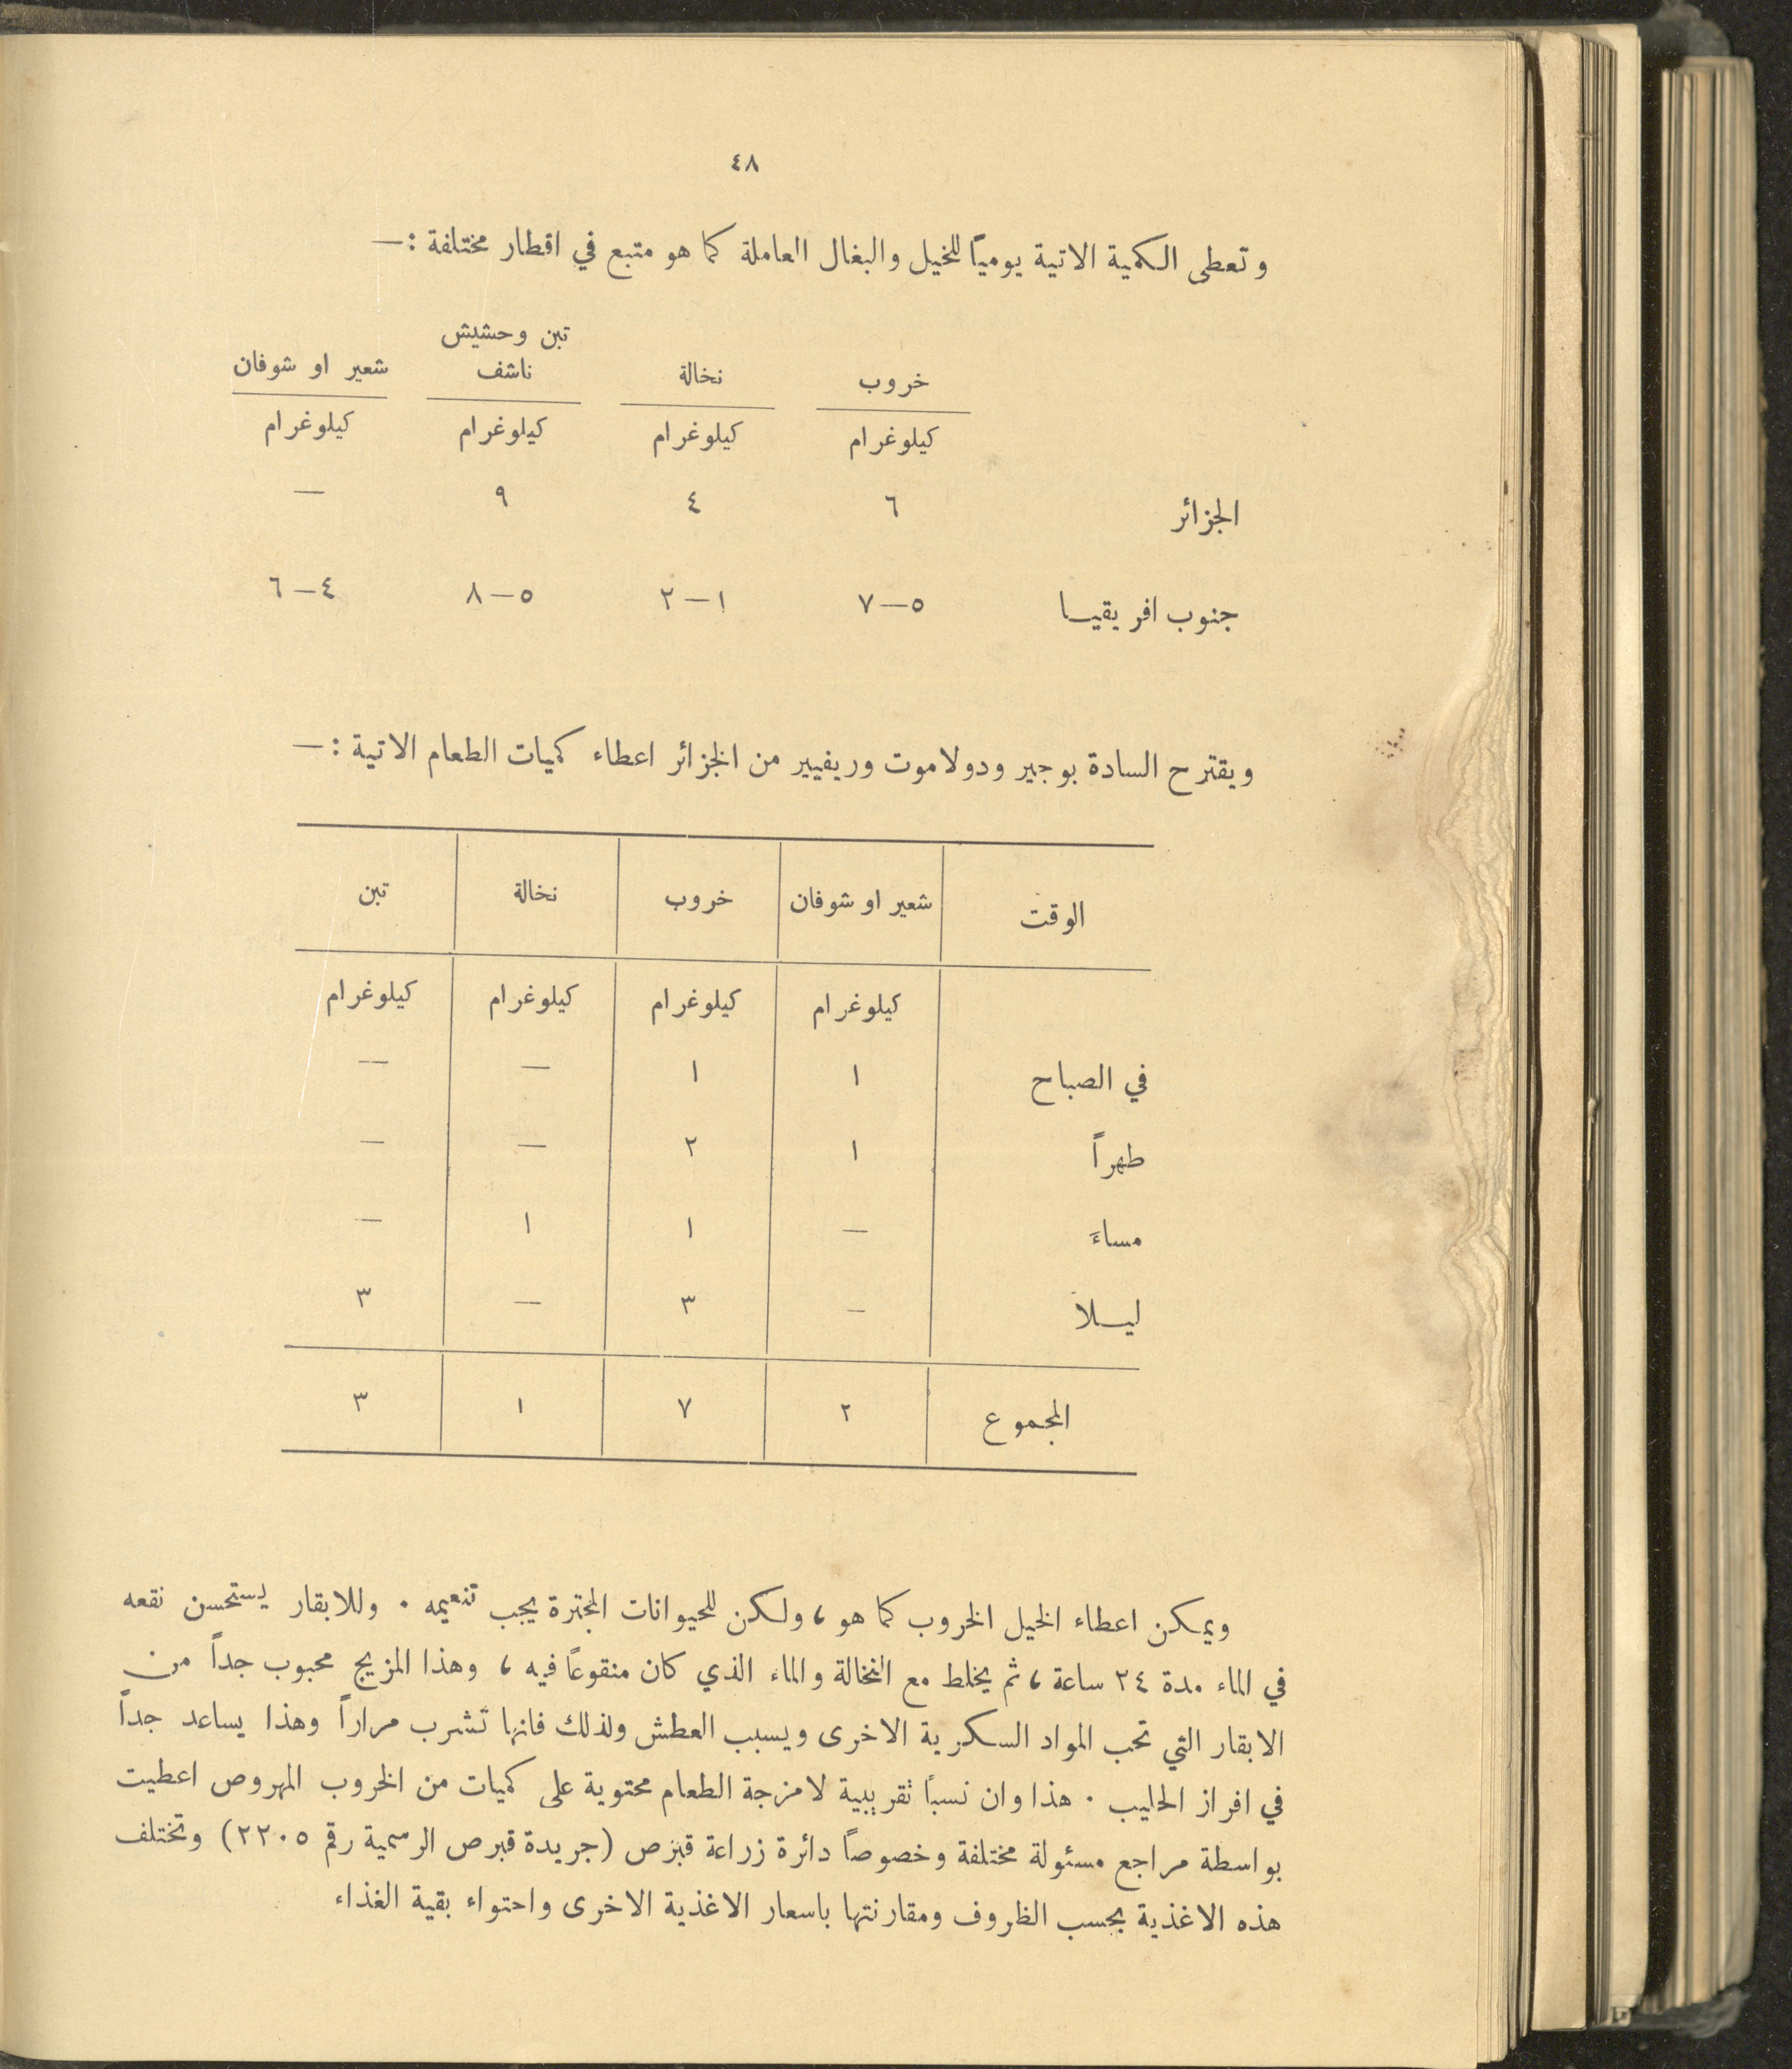 ٤٨
وتعطى الكمية الاتية يومياً للخيل والبغال العاملة كما هو متبع في اقطار مختلفة :—
خروب نخالة تبن وحشيش ناشف شعير او شوفان
كيلوغرام كيلوغرام كيلوغرام كيلوغرام
الجزائر ٦ ٤ ٩ —
جنوب افريقيا ٥—٧ ١—٢ ٥—٨ ٤—٦
ويقترح السادة بوجير ودولاموت وريفيير من الجزائر اعطاء كميات الطعام الاتية :—
الوقت شعير او شوفان خروب نخالة تبن
كيلوغرام كيلوغرام كيلوغرام كيلوغرام
في الصباح ١ ١ — —
طهراً ١ ٢ — —
مساءً — ١ ١ —
ليلا — ٣ — ٣
المجموع ٢ ٧ ١ ٣
ويمكن اعطاء الخيل الخروب كما هو ، ولكن للحيوانات المجترة يجب تنعيمه . وللابقار يستحسن نقعه
في الماء مدة ٢٤ ساعة ، ثم يخلط مع النخالة والماء الذي كان منقوعاً فيه ، وهذا المزيج محبوب جداً من
الابقار التي تحب المواد السكرية الاخرى ويسبب العطش ولذلك فانها تشرب مراراً وهذا يساعد جداً
في افراز الحليب . هذا وان نسباً تقريبية لامزجة الطعام محتوية على كميات من الخروب المهروص اعطيت
بواسطة مراجع مسئولة مختلفة وخصوصاً دائرة زراعة قبرص (جريدة قبرص الرسمية رقم ٢٢٠٥) وتختلف
هذه الاغذية بحسب الظروف ومقارنتها باسعار الاغذية الاخرى واحتواء بقية الغذاء